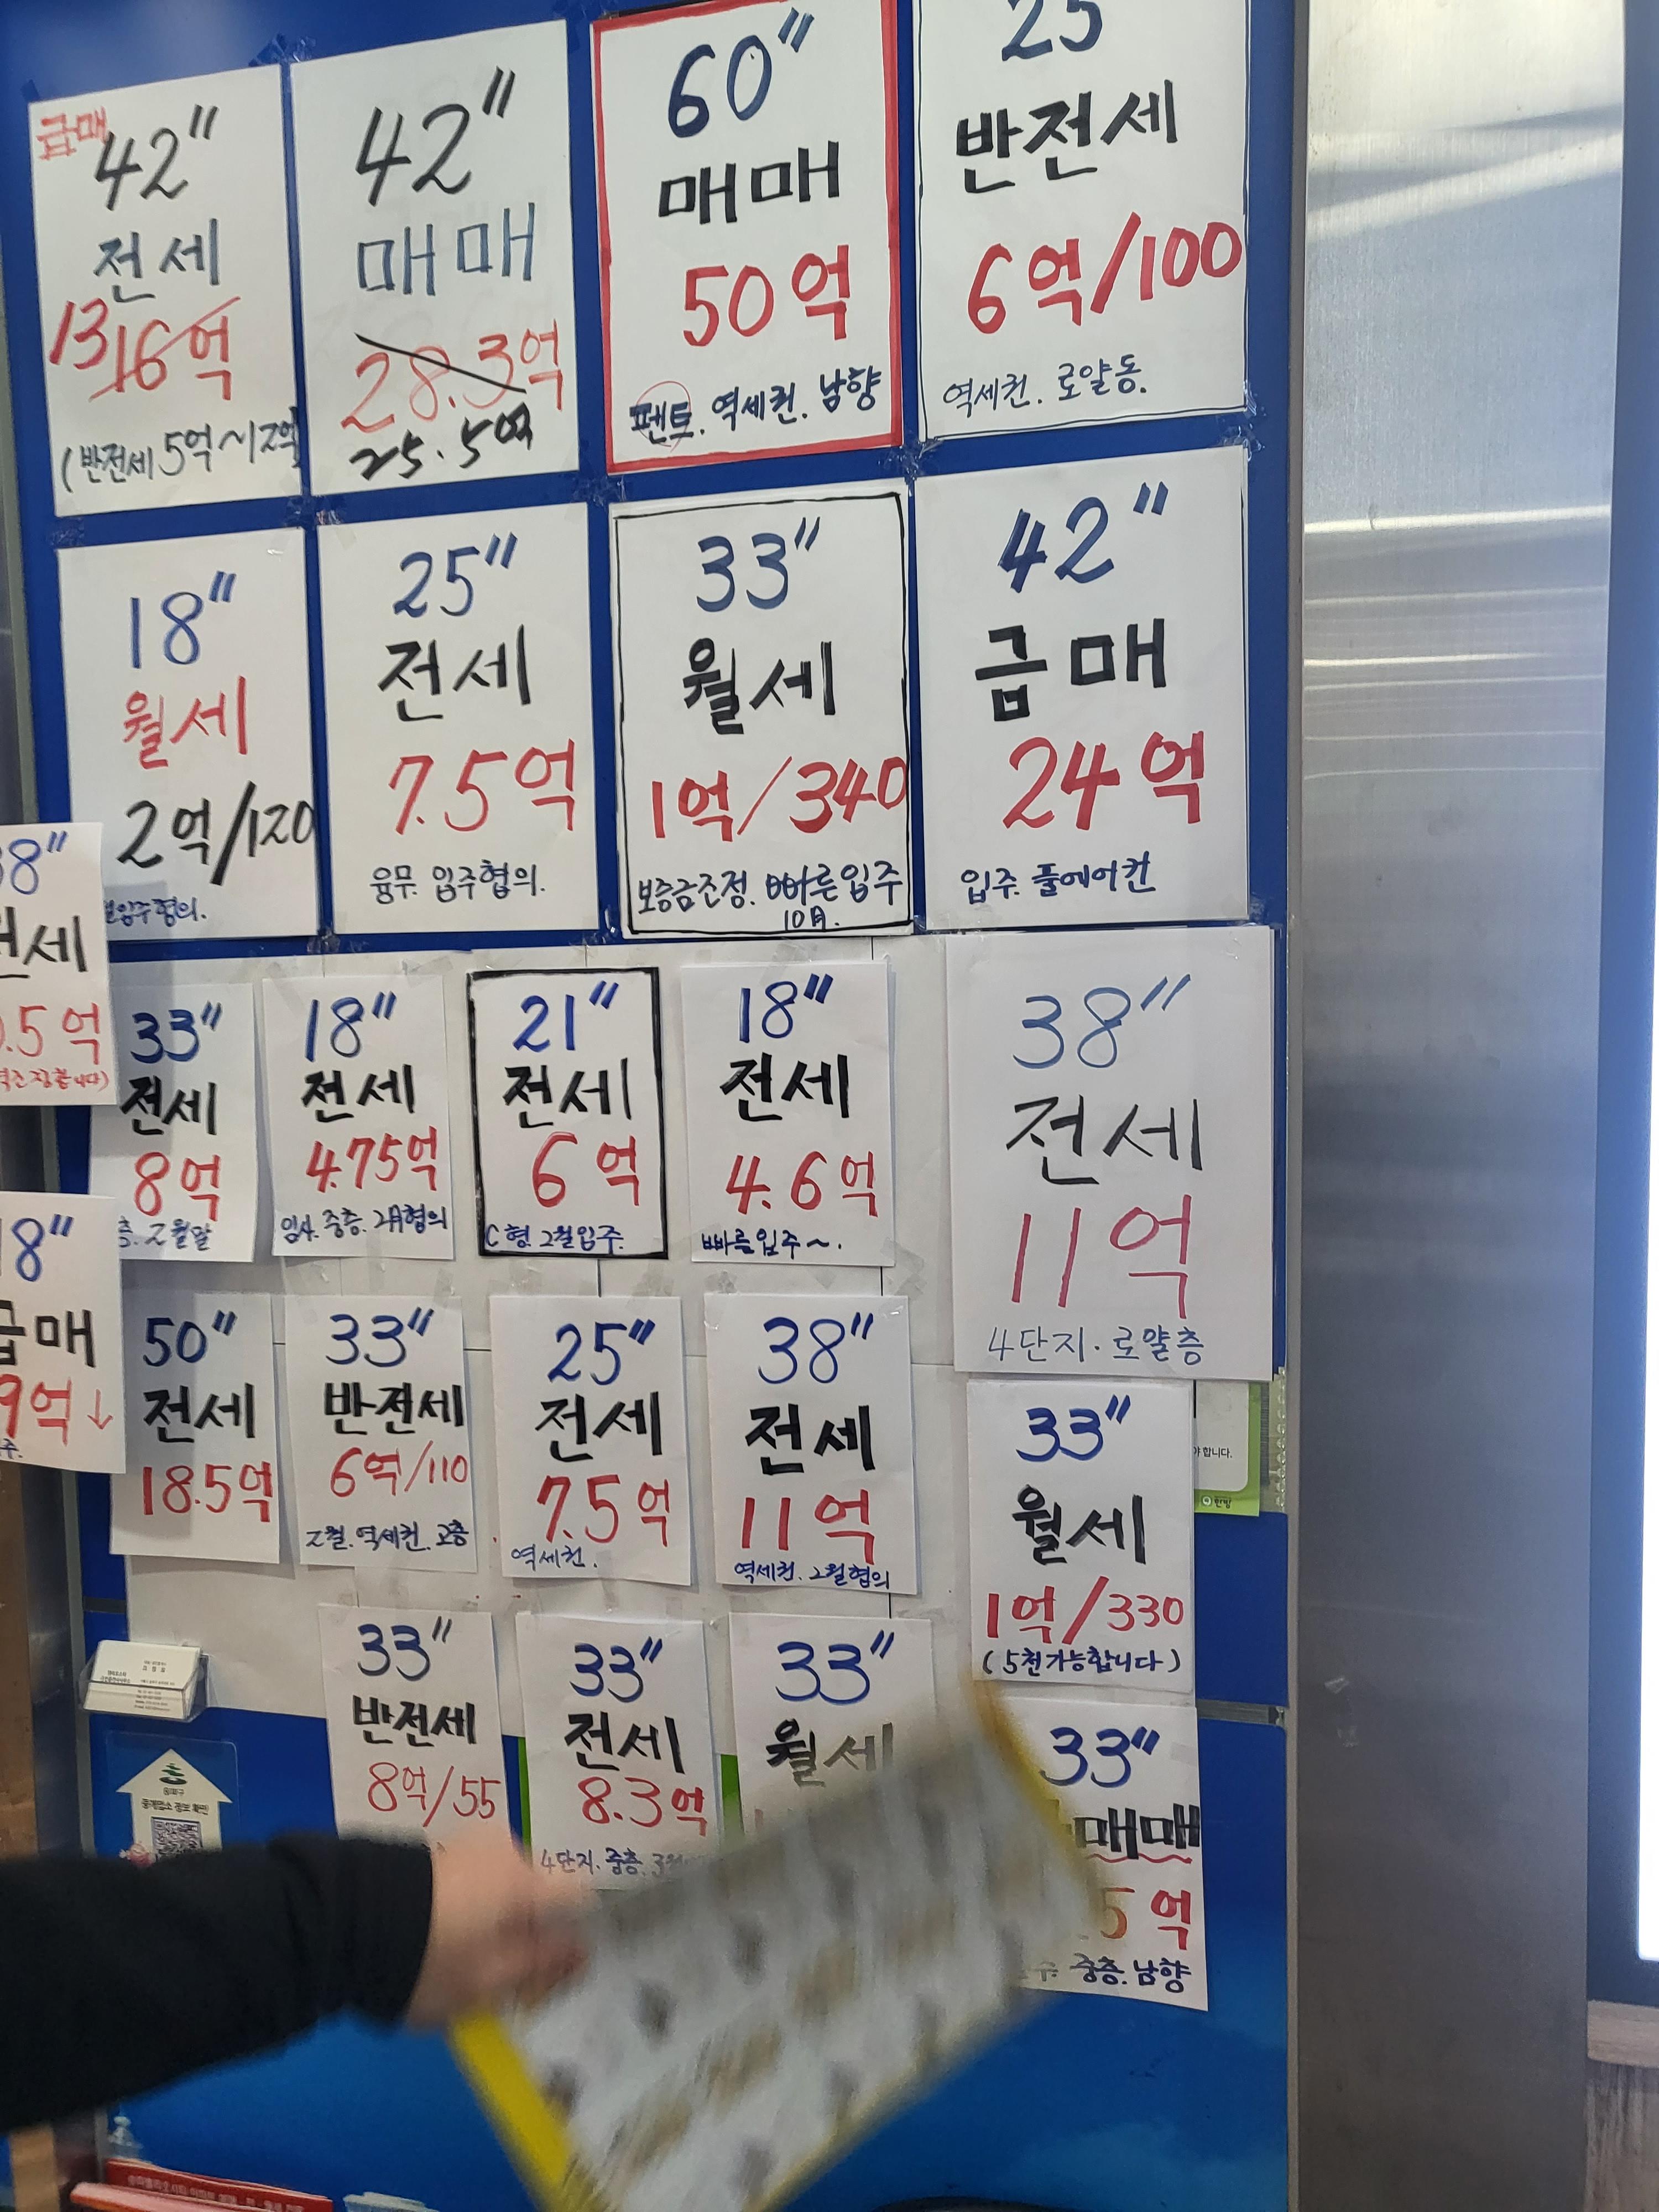 급매
42"
전세
13 16억
(반전세 5억~12억
42"
매매
28.3억
25.5억
60"
매매
50억
펜트. 역세권. 남향
25
반전세
6억/100
역세권. 로얄동.
18"
월세
2억/120
입주협의.
25"
전세
7.5억
융무. 입주협의.
33"
월세
1억/340
보증금조정. 빠른입주
10月.
42"
급매
24억
입주. 풀에어컨
8"
세
.5억
33"
전세
8억
층. 2월말
18"
전세
4.75억
중층. 2月협의
21"
전세
6억
C형. 2월입주.
18"
전세
4.6억
빠른입주~.
38"
전세
11억
4단지. 로얄층
18"
급매
9억↓
50"
전세
18.5억
33"
반전세
6억/110
2월. 역세권. 고층
25"
전세
7.5억
역세권.
38"
전세
11억
역세권. 2월협의
33"
월세
1억/330
(5천가능합니다)
야 합니다.
한방
33"
반전세
8억/55
33"
전세
8.3억
4단지. 중층. 3월
33"
월세
33"
매매
5억
중층. 남향